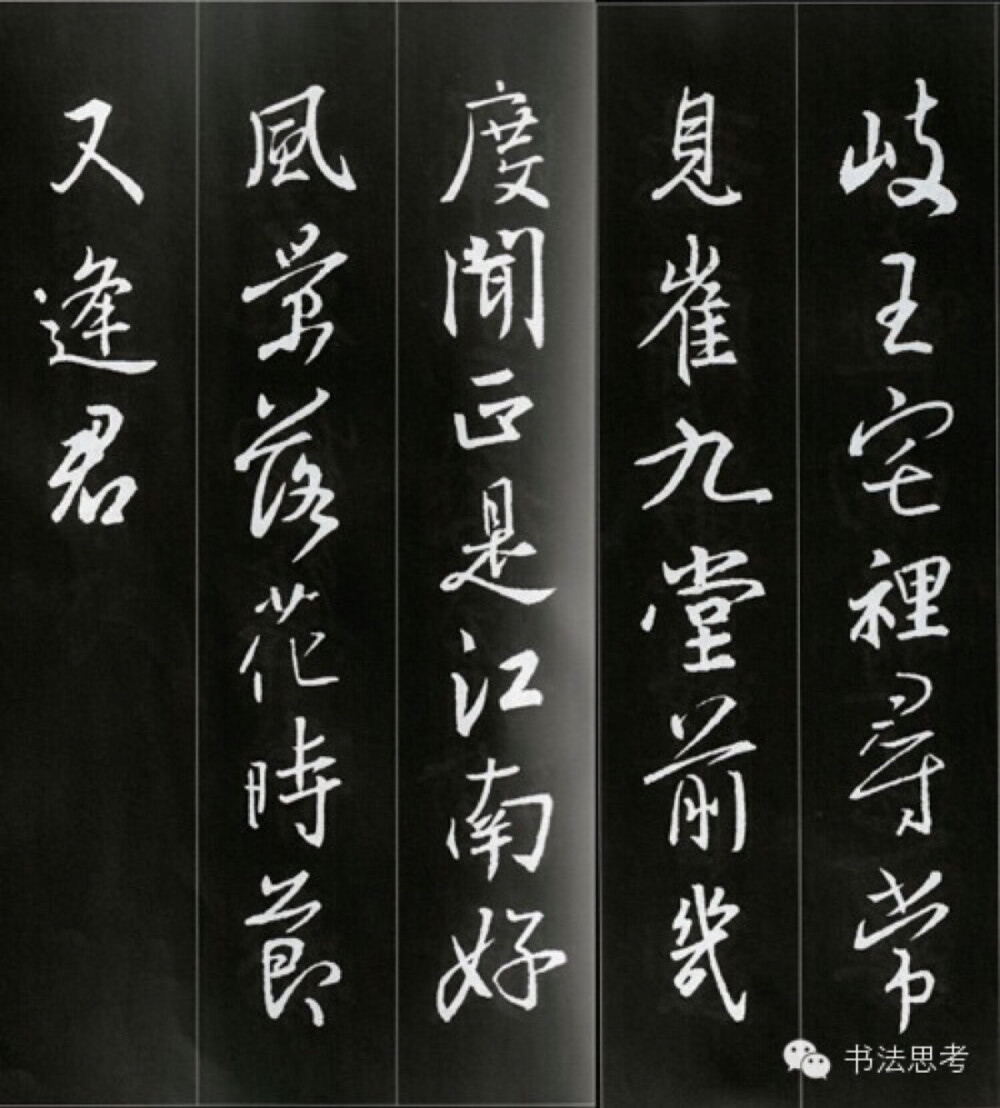 歧王宅裡尋常
見崔九堂前幾
度聞正是江南好
風景落花時節
又逢君
书法思考